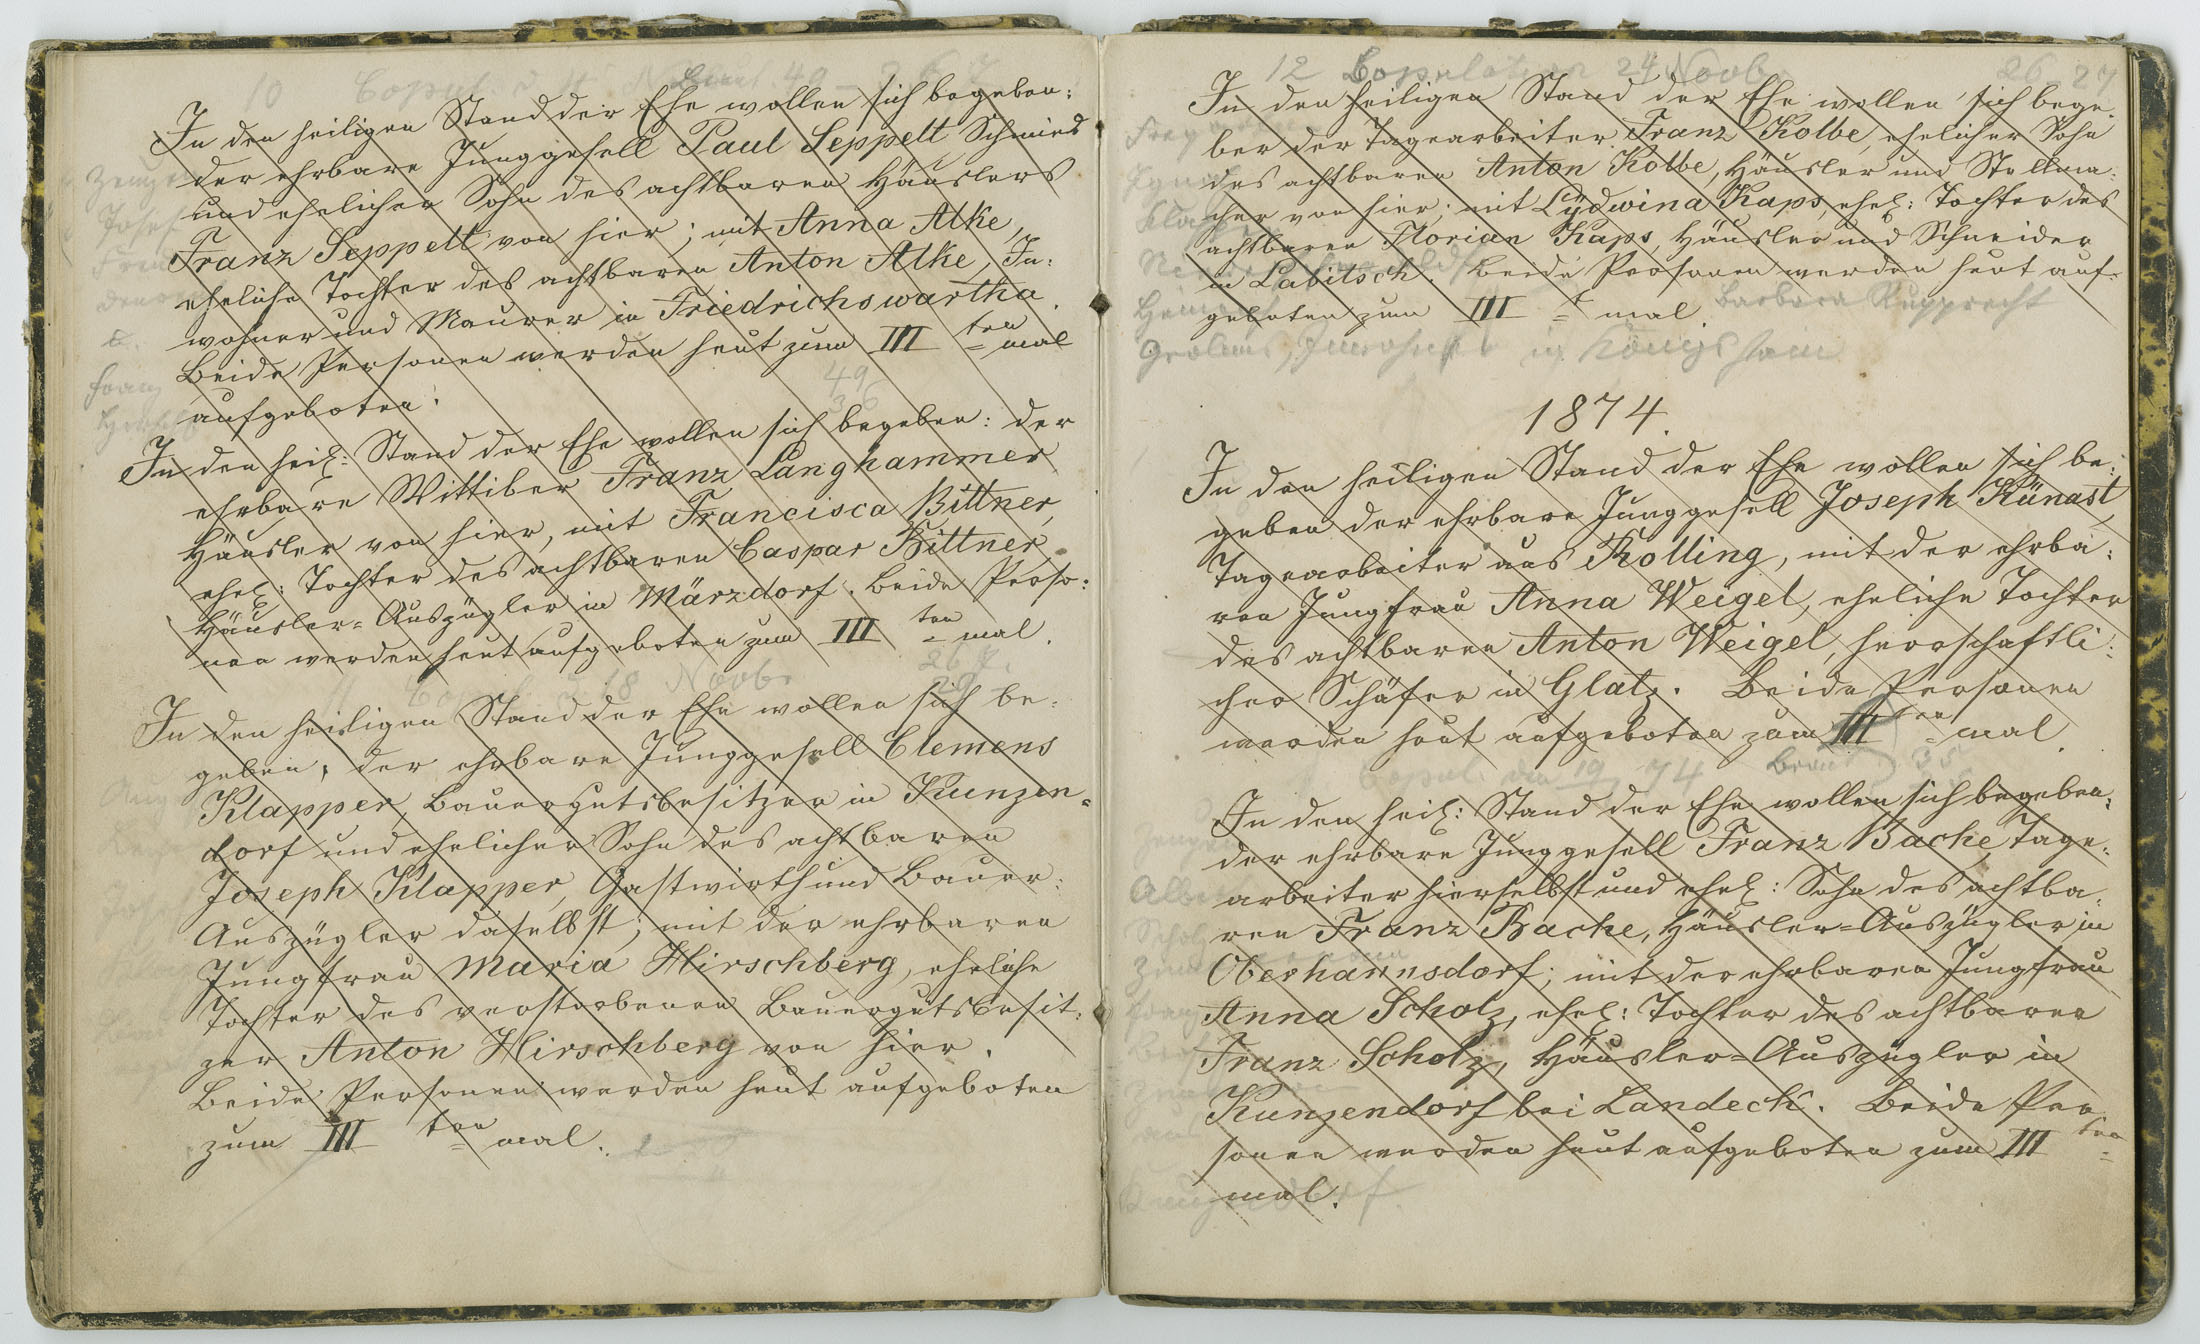 10 Copul.
In den heiligen Stand der Ehe wollen sich begeben:
der ehrbare Junggesell Paul Seppelt Schmied
und ehelicher Sohn des achtbaren Häuslers
Franz Seppelt von hier; mit Anna Atke,
eheliche Tochter des achtbaren Anton Atke, In:
wohner und Maurer in Friedrichswartha.
Beide Personen werden heut zum III ten mal
aufgeboten.
In den heil: Stand der Ehe wollen sich begeben: der
ehrbare Wittiber Franz Langhammer
Häusler von hier, mit Francisca Bittner,
ehel: Tochter des achtbaren Caspar Bittner,
Häusler-Auszügler in Märzdorf. Beide Perso:
nen werden heut aufgeboten zum III ten mal.
Copul. 18 Novbr
In den heiligen Stand der Ehe wollen sich be:
geben, der ehrbare Junggesell Clemens
Klapper, Bauergutsbesitzer in Kunzen-
dorf und ehelicher Sohn des achtbaren
Joseph Klapper, Gastwirth und Bauer:
Auszügler daselbst; mit der ehrbaren
Jungfrau Maria Hirschberg, eheliche
Tochter des verstorbenen Bauergutsbesit:
zer Anton Hirschberg von hier.
Beide Personen werden heut aufgeboten
zum III ten mal.
12 Copulation 24 Novb. 26 27
In den heiligen Stand der Ehe wollen sich bege
ber der Tagearbeiter Franz Kolbe, ehelicher Sohn
des achtbaren Anton Kolbe, Häusler und Stellma:
cher von hier; mit Lydwina Kaps, ehel: Tochter des
achtbaren Florian Kaps, Häusler und Schneider
in Labitsch. Beide Personen werden heut auf-
geboten zum III t mal
Barbara Rupprecht
in Königshain
1874.
In den heiligen Stand der Ehe wollen sich be:
geben der ehrbare Junggesell Joseph Künast,
Tagearbeiter aus Kolling, mit der ehrba:
ren Jungfrau Anna Weigel, eheliche Tochter
des achtbaren Anton Weigel, herrschaftli:
cher Schäfer in Glatz. Beide Personen
werden heut aufgeboten zum III ten mal.
Copul. den 19 74
In den heil: Stand der Ehe wollen sich begeben:
der ehrbare Junggesell Franz Bache, Tage:
arbeiter hierselbst und ehel: Sohn des achtba:
ren Franz Bache, Häusler-Auszügler in
Oberhannsdorf; mit der ehrbaren Jungfrau
Anna Scholz, ehel: Tochter des achtbaren
Franz Scholz, Häusler-Auszügler in
Kunzendorf bei Landeck. Beide Per
sonen werden heut aufgeboten zum III ten
mal.